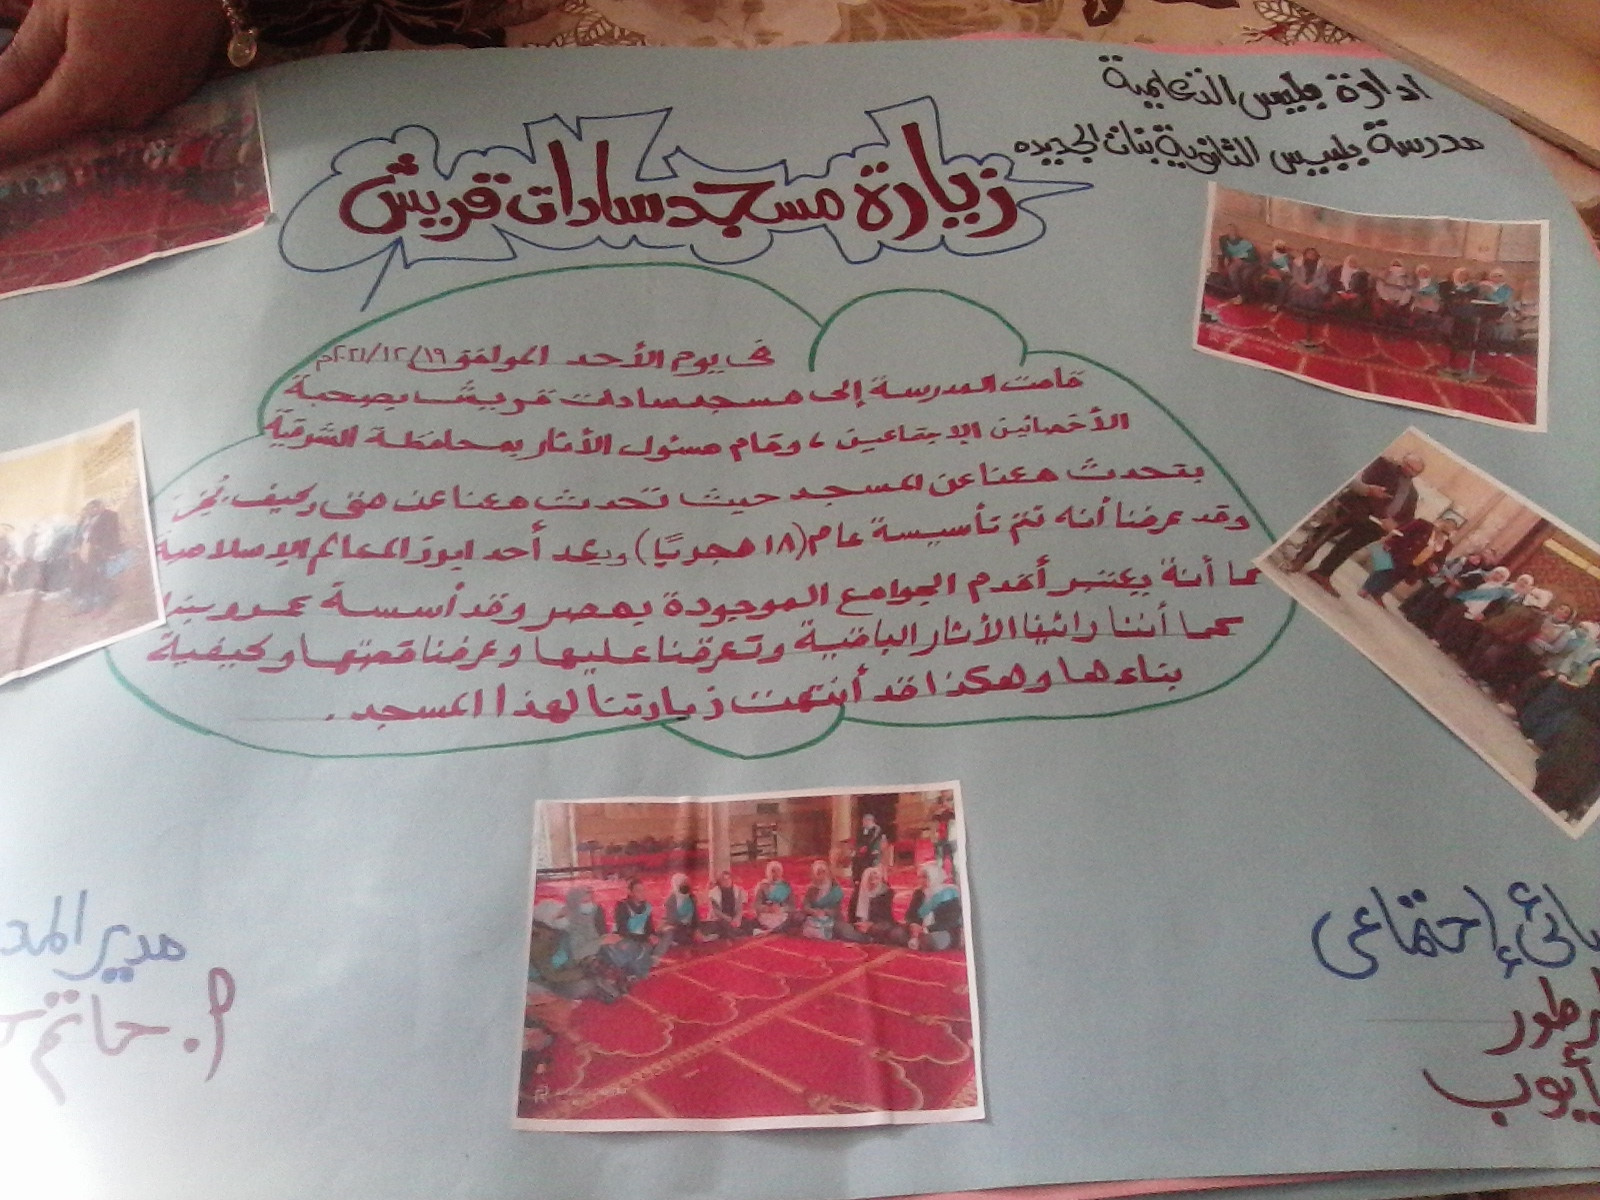 ادارة بلبيس التعليمية
مدرسة بلبيس الثانوية بنات الجديده
زيارة مسجد سادات قريش
في يوم الأحد الموافق ٢٠٢١/١٢/١٩م
قامت المدرسة إلى مسجد سادات قريش بصحبة
الأخصائين الإجتماعين ، وقام مسئول الأثار بمحافظة الشرقية
بتحدث معنا عن المسجد حيث تحدث معنا عن متى وكيف
وقد عرفنا أنه تم تأسيسة عام (١٨ هجريًا) ويعد أحد ابرز المعالم الإسلامية
كما أنة يعتبر أقدم الجوامع الموجودة بمصر وقد أسسة عمرو بن
كما أننا رائينا الأثار الباقية وتعرفنا عليها وعرفنا قصتها وكيفية
بناءها وهكذا قد أنتهت زيارتنا لهذا المسجد .
إجتماعى
أيوب
مدير
أ. حاتم